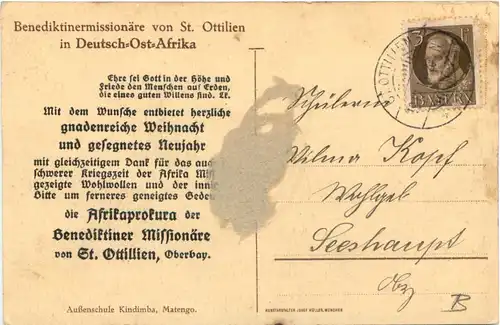 Benediktinermissionäre von St. Ottilien
in Deutsch=Ost=Afrika
Ehre sei Gott in der Höhe und
Friede den Menschen auf Erden,
die eines guten Willens sind. Lk.
Mit dem Wunsche entbietet herzliche
gnadenreiche Weihnacht
und gesegnetes Neujahr
mit gleichzeitigem Dank für das auch
schwerer Kriegszeit der Afrika
gezeigte Wohlwollen und der
Bitte um ferneres geneigtes
die Afrikaprokura der
Benediktiner Missionäre
von St. Ottilien, Oberbay.
Außenschule Kindimba, Matengo.
3 PF
BAYERN
OTTILIEN
Schülerin
Vilma Kopf
Seeshaupt
Obb
B
KUNSTANSTALTEN JOSEF MÜLLER, MÜNCHEN